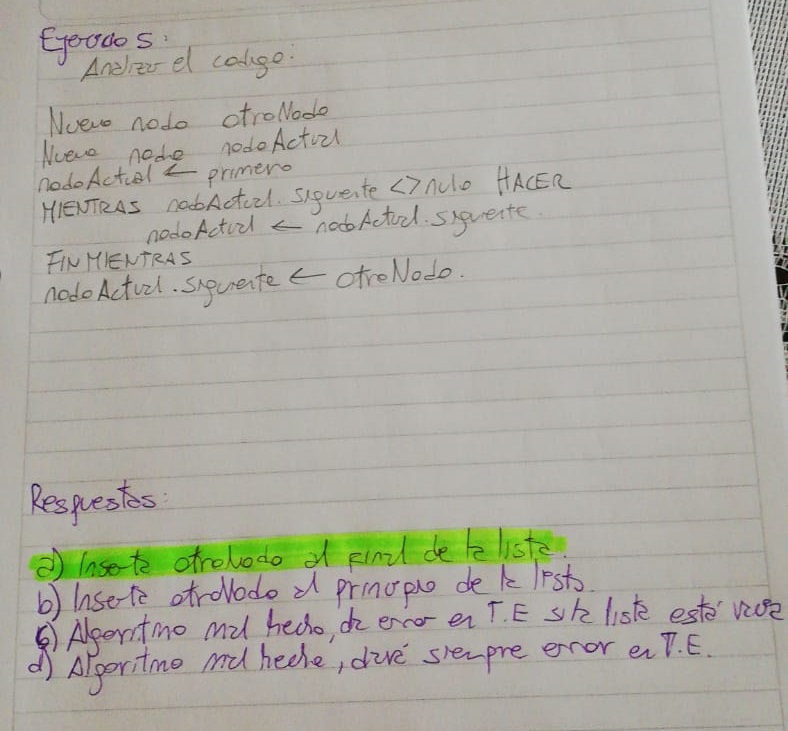 Ejercicios:
Analizar el codigo:
Nuevo nodo otroNodo
Nuevo nodo nodoActual
nodoActual ← primero
MIENTRAS nodoActual.siguiente <> nulo HACER
nodoActual ← nodoActual.siguiente.
FIN MIENTRAS
nodoActual.siguiente ← otroNodo.
Respuestas:
a) Inserta otroNodo al final de la lista.
b) Inserta otroNodo al principio de la lista.
c) Algoritmo mal hecho, da error en T.E si la lista está vacía
d) Algoritmo mal hecho, dará siempre error en T.E.